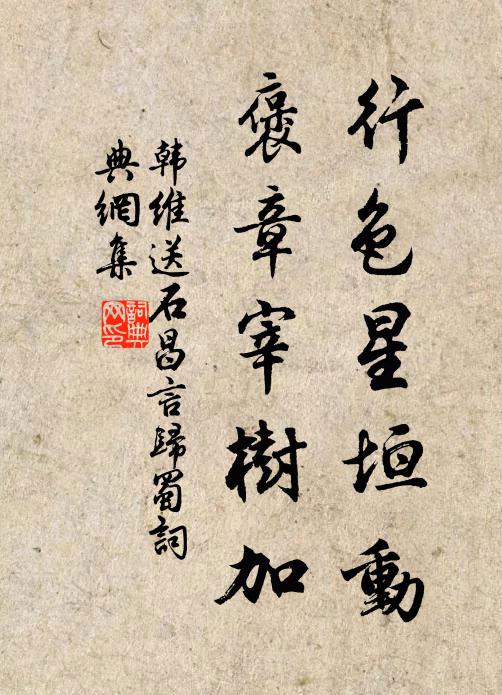 行色星垣動
褒章宰樹加
韩維送石昌言歸蜀詞
典網集
詞典
网印